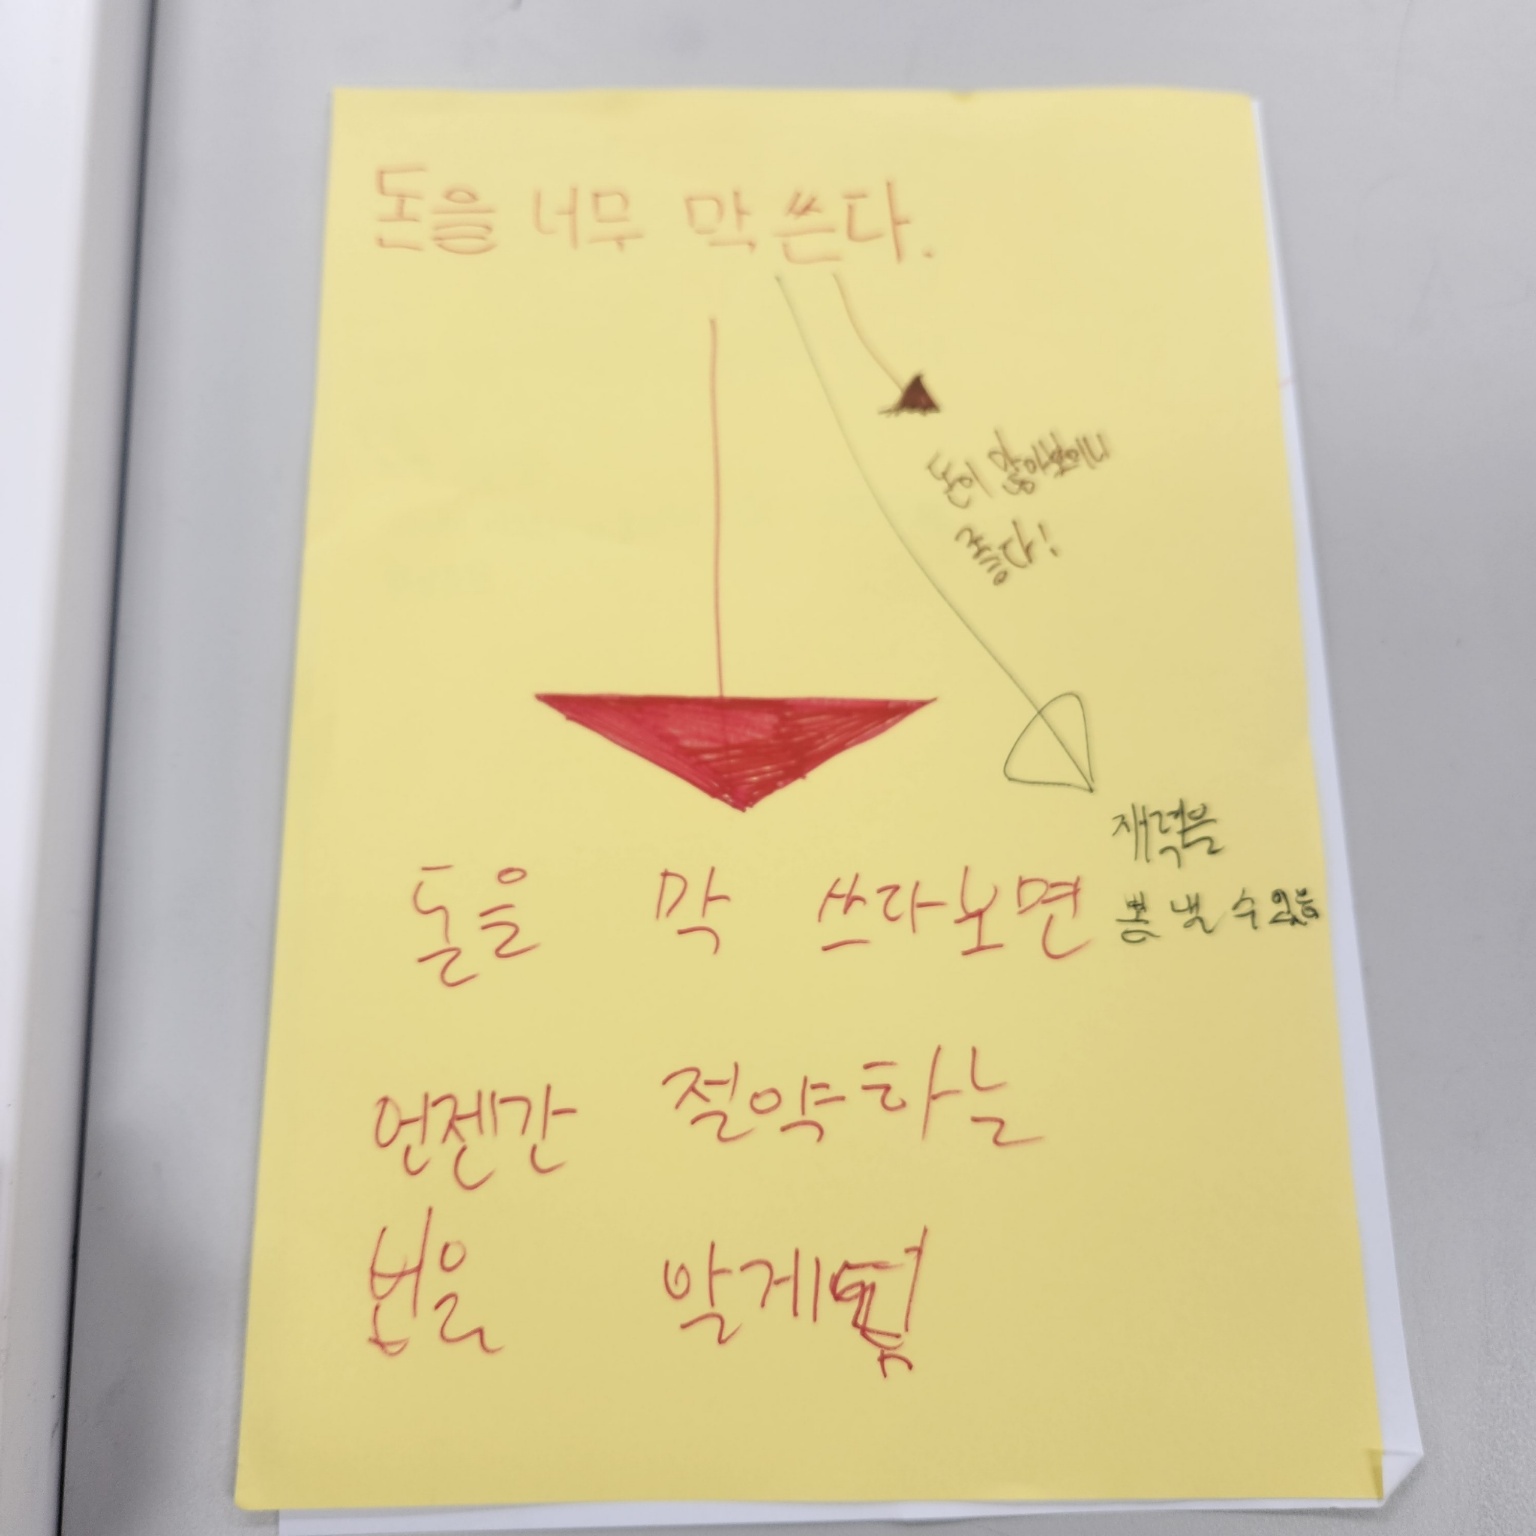 돈을 너무 막 쓴다.
돈이 많아보이니
좋다!
재력을
뽐 낼 수 있음
돈을 막 쓰다보면
언젠간 절약하는
법을 알게